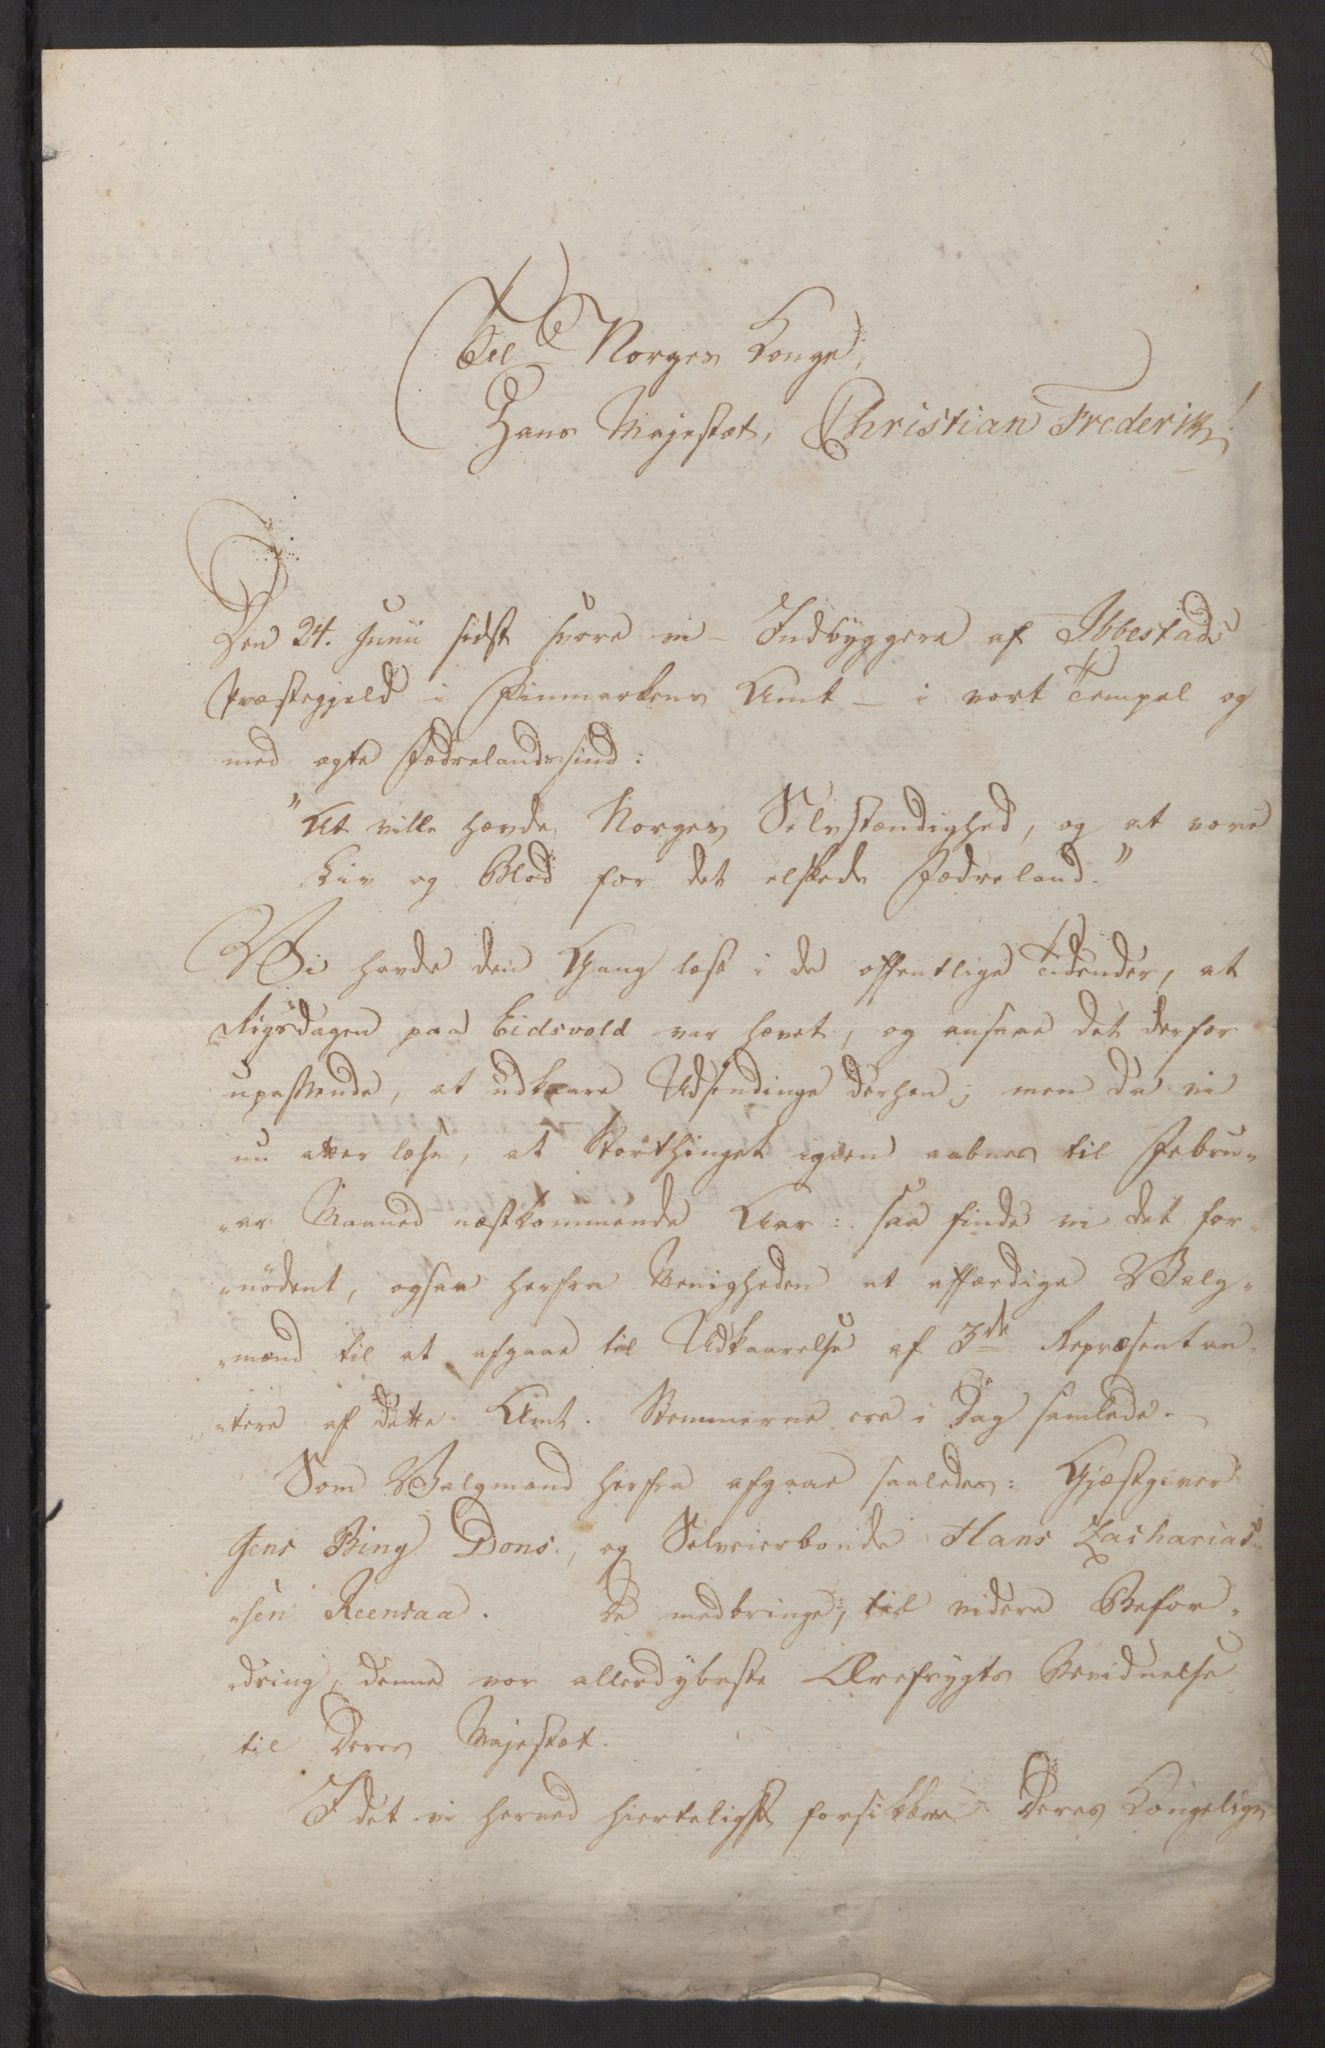 Til Norges Konge,
Hans Majestæt, Christian Frederik!
Den 24. Junii sidst svore vi – Indbyggere af Ibbestads
Præstegjeld i Finmarkens Amt – i vort Tempel og
med ægte Fædrelandssind:
"At ville hævde Norges Selvstændighed, og at vove
Liv og Blod for det elskede Fædreland."
Vi havde den Gang læst i de offentlige Tidender, at
Rigsdagen paa Eidsvold var hævet, og ansaae det derfor
upassende, at udkaare Udsendinge derhen; men da vi
nu atter læse, at Storthinget igien aabnes til Febru-
-ar Maaned næstkommende Aar: saa finde vi det for-
-nödent, ogsaa herfra Menigheden at affærdige Valg-
-mænd til at afgaae til Udkaarelse af 3de Repræsentan-
-tere af dette Amt. Stemmerne ere i Dag samlede.
Som Valgmænd herfra afgaae saaledes: Gjæstgiver
Jens Bing Dons, og Selveierbonde Hans Zacharias-
-sen Reensaa. De medbringe, til videre Befor-
-dring, denne vor allerdybeste Ærefrygts Bevidnelse
til Deres Majestæt.
Idet vi herved hierteligst forsikkre Deres Kongelige